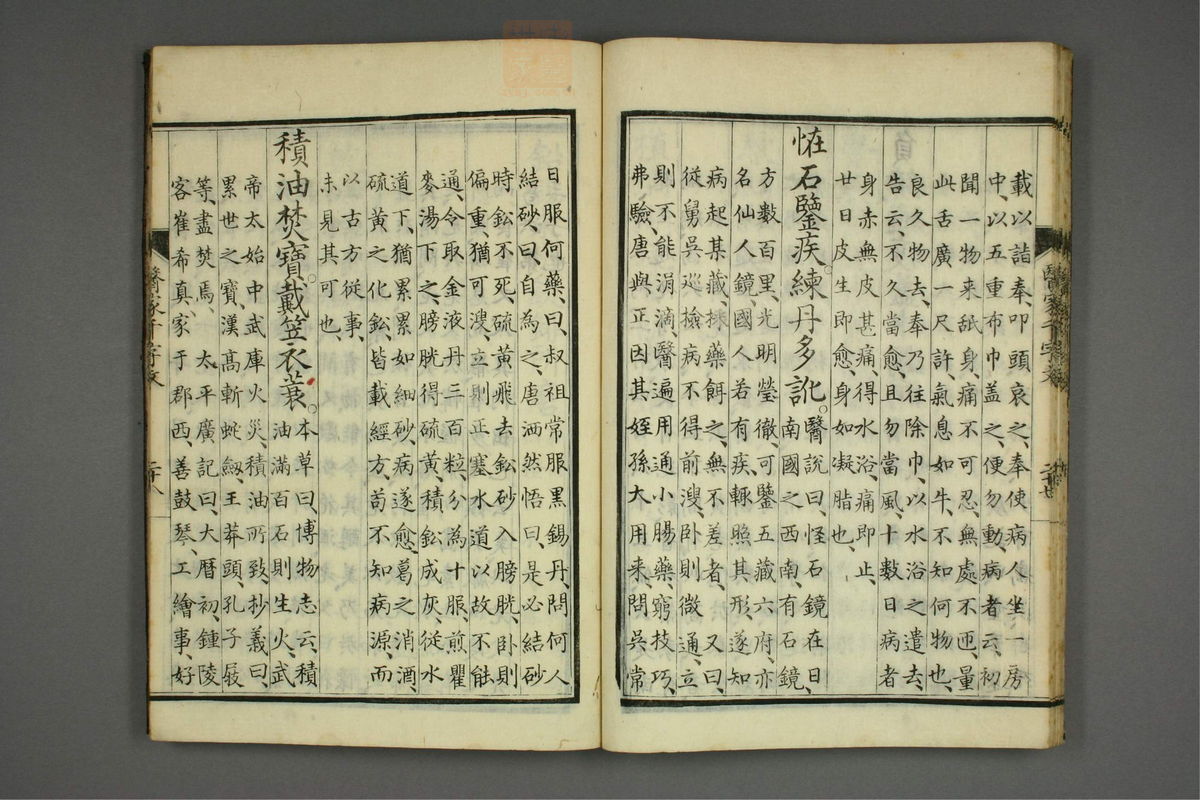 載以詣奉、叩頭哀之、奉使病人坐一房
中、以五重布巾盖之、便勿動、病者云、初
聞一物来舐身、痛不可忍、無處不匝、量
此舌廣一尺許、氣息如牛、不知何物也、
良久物去、奉乃往除巾、以水浴之遣去、
告云、不久當愈、且勿當風、十數日病者
身赤無皮甚痛、得水浴、痛即止、
廿日皮生即愈、身如凝脂也、
恠石鑒疾。練丹多訛。
醫說曰、怪石鏡在日、
南國之西南、有石鏡、
方數百里、光明瑩徹、可鑒五藏六府、亦
名仙人鏡、國人若有疾、輒照其形、遂知
病起某藏、採藥餌之、無不差者、又曰、
従舅吳巡檢病不得前溲、卧則微通、立
則不能涓滴、醫遍用通小腸藥、窮技巧、
弗驗、唐與正因其姪孫大用来、問吳常
日服何藥、曰、叔祖常服黒錫丹、問何人
結砂、曰、自為之、唐洒然悟曰、是必結砂
時鈆不死、硫黄飛去、鈆砂入膀胱、卧則
偏重、猶可溲、立則正塞水道、以故不能
通、令取金液丹三百粒、分為十服、煎瞿
麥湯下之、膀胱得硫黄、積鈆成灰、従水
道下、猶累累如細砂、病遂愈、葛之消酒、
硫黄之化鈆、皆載經方、苟不知病源、而
以古方従事、
未見其可也、
積油焚寶。戴笠衣蓑。
本草曰、博物志云、積
油滿百石則生火、武
帝太始中、武庫火災、積油所致、抄義曰、
累世之寶、漢髙斬虵劔、王莽頭、孔子屐
等、盡焚焉、太平廣記曰、大暦初、鍾陵
客崔希真、家于郡西、善鼓琴、工繪事、好
醫家千字文
二十八